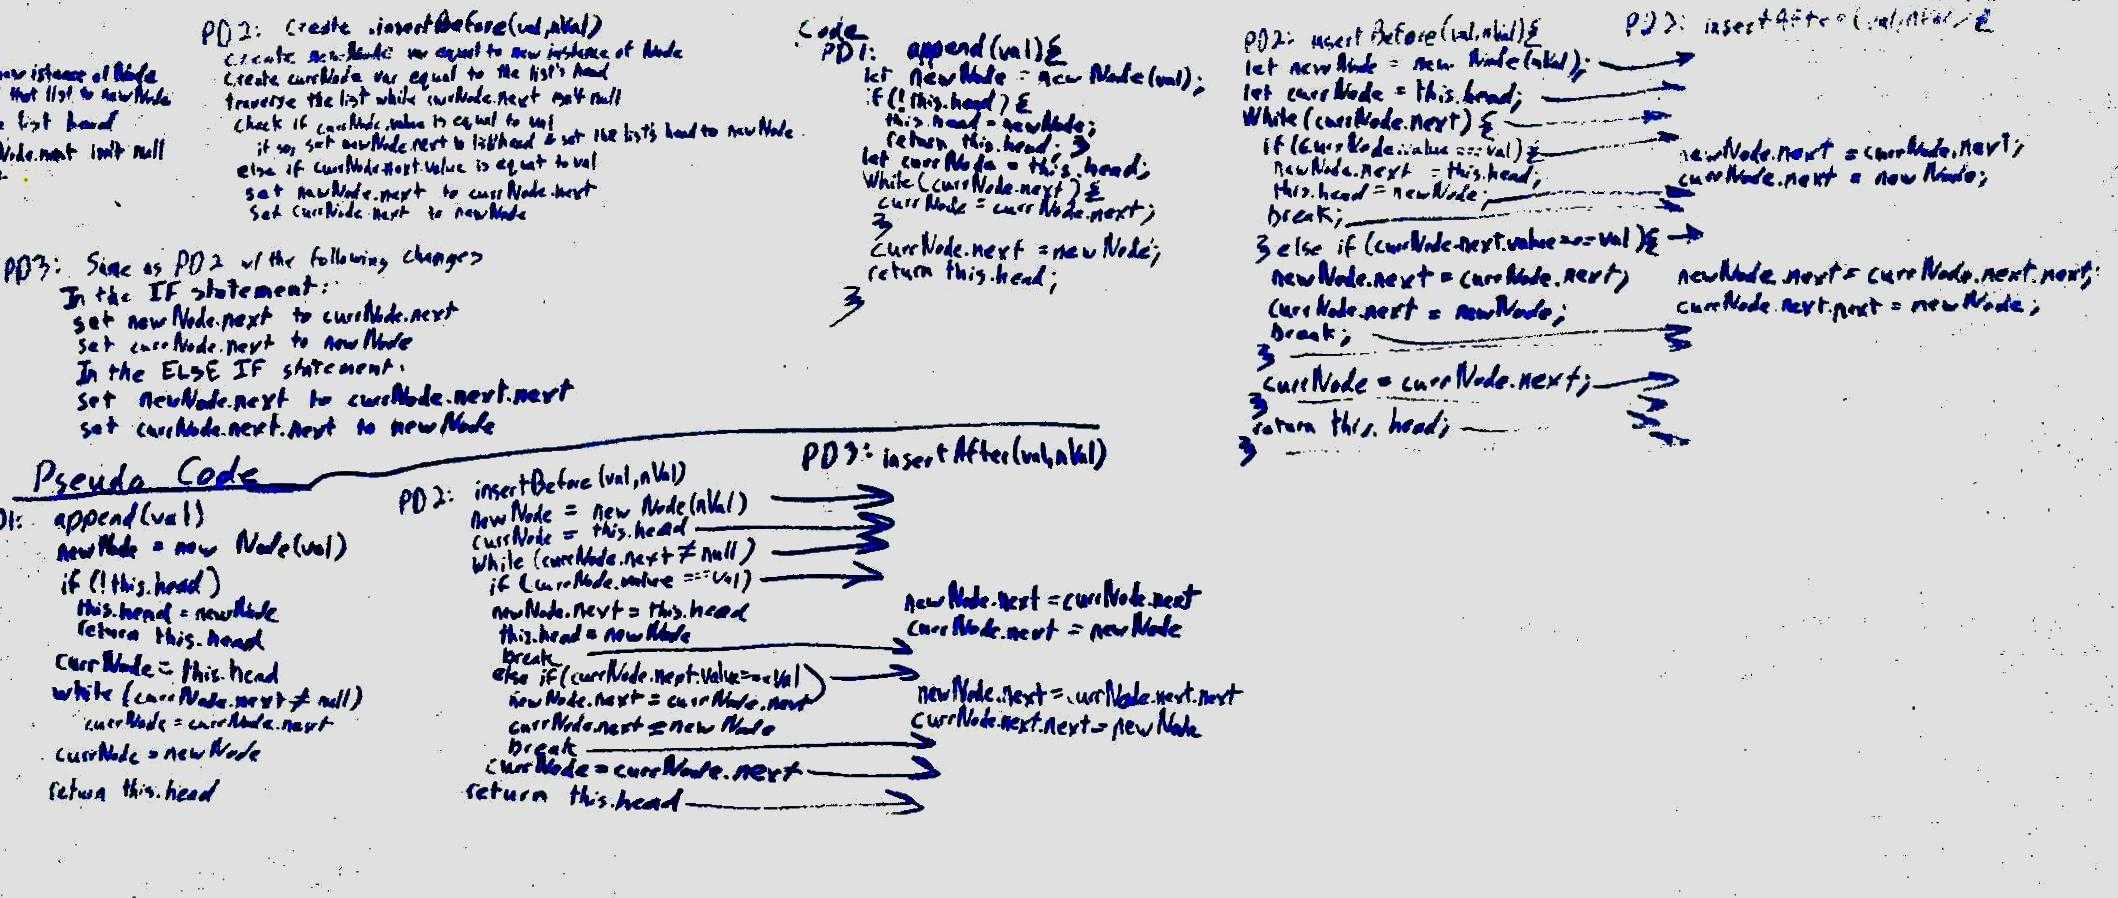 new istance of Node
that list to newNode
list head
Node.next isn't null
PD2: Create .insertBefore(val,nVal)
create newNode var equal to new instance of Node
create currNode var equal to the list's head
traverse the list while currNode.next isn't null
check if currNode.value is equal to val
if so, set newNode.next to list head & set the list's head to newNode.
else if currNode.next.value is equal to val
set newNode.next to currNode.next
set currNode.next to newNode
PD3: Same as PD2 w/ the following changes
In the IF statement:
set newNode.next to currNode.next
set currNode.next to newNode
In the ELSE IF statement.
set newNode.next to currNode.next.next
set currNode.next.next to newNode
Code
PD1: append(val){
let newNode = new Node(val);
if(!this.head){
this.head = newNode;
return this.head; }
let currNode = this.head;
While(currNode.next){
currNode = currNode.next;
}
currNode.next = newNode;
return this.head;
}
PD2: insertBefore(val,nVal){
let newNode = new Node(nVal);
let currNode = this.head;
While(currNode.next){
if(currNode.value === val){
newNode.next = this.head;
this.head = newNode;
break;
} else if (currNode.next.value === val){
newNode.next = currNode.next;
currNode.next = newNode;
break;
}
currNode = currNode.next;
}
return this.head;
}
PD3: insertAfter(val,nVal){
newNode.next = currNode.next;
currNode.next = newNode;
newNode.next = currNode.next.next;
currNode.next.next = newNode;
Pseudo Code
D1: append(val)
newNode = new Node(val)
if (!this.head)
this.head = newNode
return this.head
currNode = this.head
while (currNode.next ≠ null)
currNode = currNode.next
currNode = newNode
return this.head
PD2: insertBefore(val,nVal)
newNode = new Node(nVal)
currNode = this.head
While (currNode.next ≠ null)
if (currNode.value === val)
newNode.next = this.head
this.head = newNode
break
else if (currNode.next.value === val)
newNode.next = currNode.next
currNode.next = newNode
break
currNode = currNode.next
return this.head
PD3: insertAfter(val,nVal)
newNode.next = currNode.next
currNode.next = newNode
newNode.next = currNode.next.next
currNode.next.next = newNode